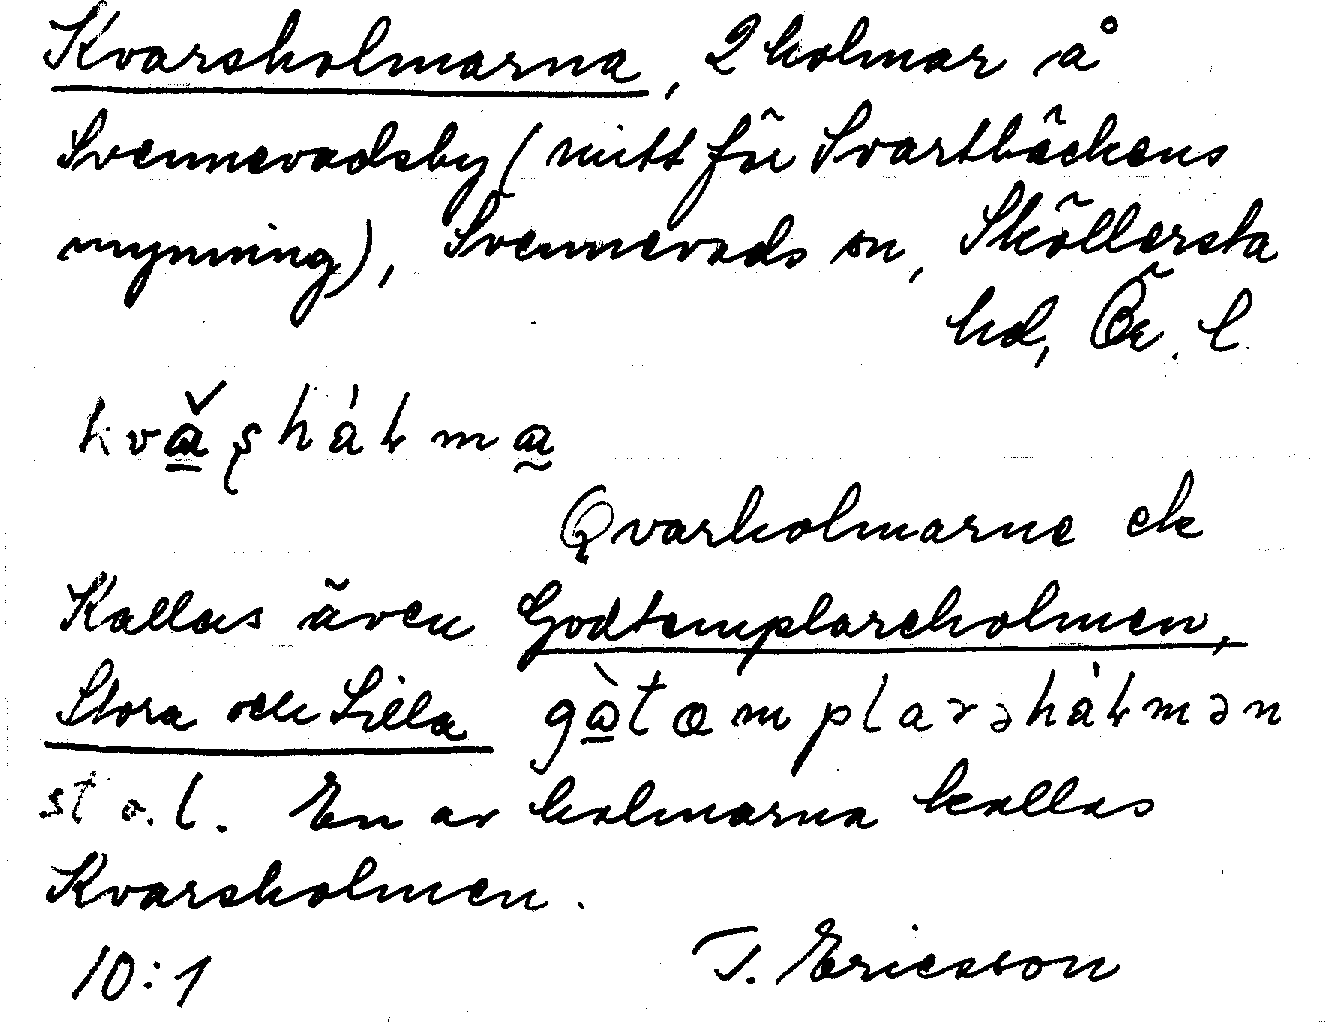 Kvarsholmarna, 2 holmar å
Svennevadsby (mitt för Svartbäckens
mynning), Svennevads sn, Sköllersta
hd, Ör. l.
kvăʂhålma
Qvarholmarne ek
Kallas även Godtemplareholmen,
Stora och Lilla gòtæmplarəhålmən
st o. l. En av holmarna kallas
Kvarsholmen.
10:1 T. Ericsson